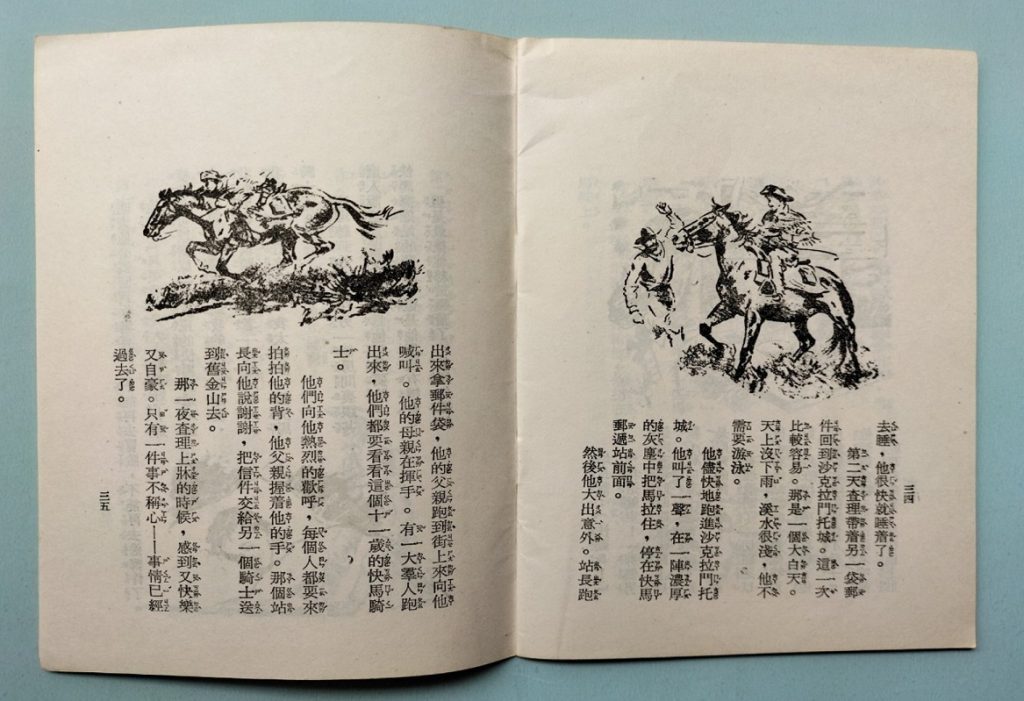 去睡，他很快就睡着了。
第二天查理帶着另一袋郵
件回到沙克拉門托城。這一次
比較容易。那是一個大白天。
天上沒下雨，溪水很淺，他不
需要游泳。
他儘快地跑進沙克拉門托
城。他叫了一聲，在一陣濃厚
的灰塵中把馬拉住，停在快馬
郵遞站前面。
然後他大出意外。站長跑
三四
出來拿郵件袋，他的父親跑到街上來向他
喊叫。他的母親在揮手。有一大羣人跑
出來，他們都要看看這個十一歲的快馬騎
士。
他們向他熱烈的歡呼，每個人都要來
拍拍他的背，他父親握着他的手。那個站
長向他說謝謝，把信件交給另一個騎士送
到舊金山去。
那一夜查理上牀的時候，感到又快樂
又自豪。只有一件事不稱心——事情已經
過去了。
三五